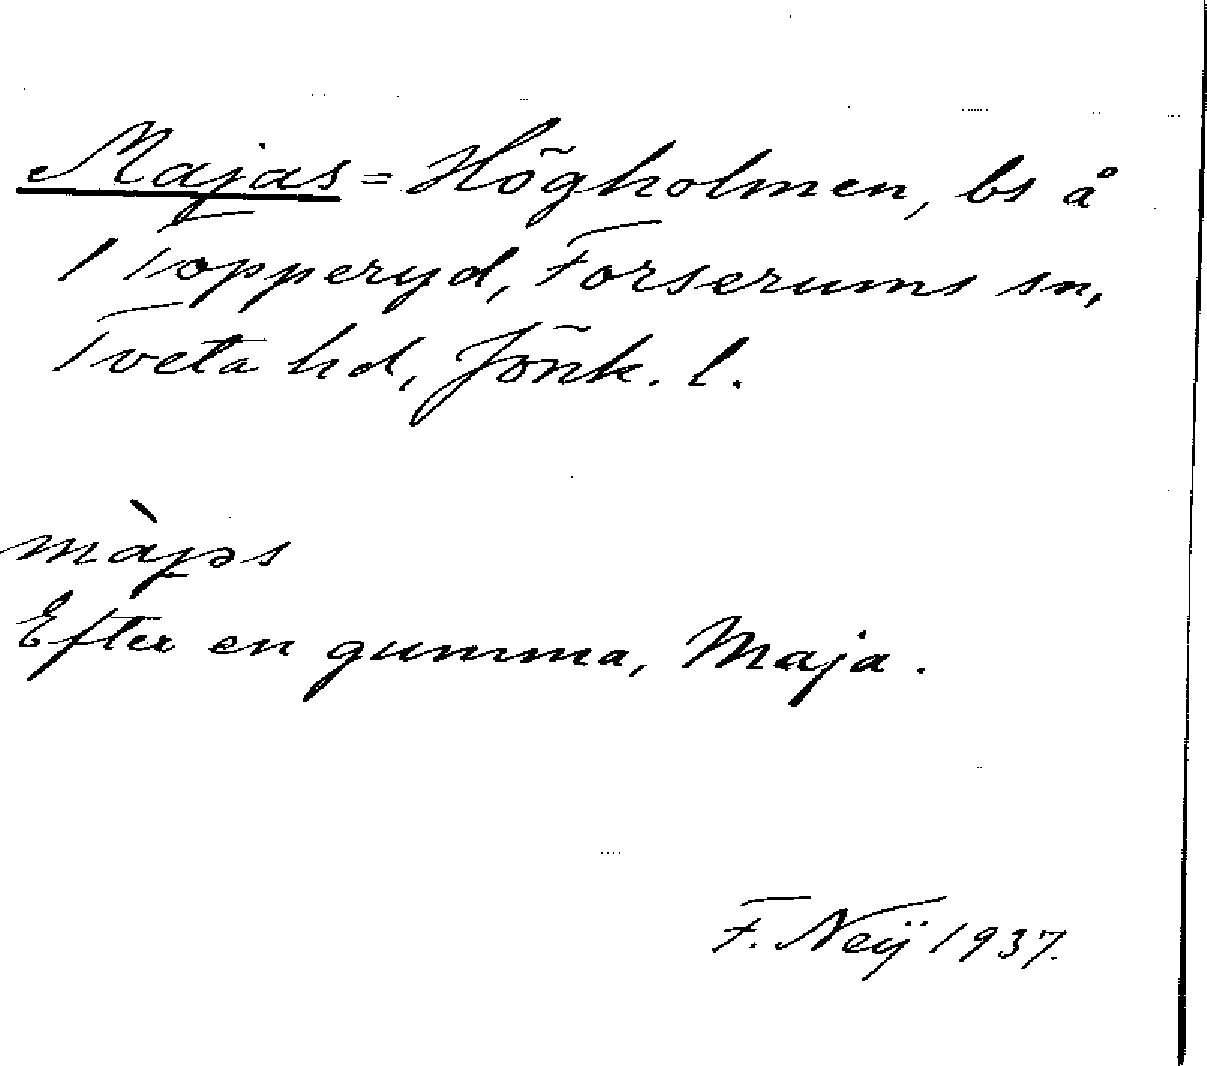 Majas = Högholmen, bs å
1 Topperyd, Forserums sn,
Tveta hd, Jönk. l.
màjəs
Efter en gumma, Maja.
F. Neÿ 1937.